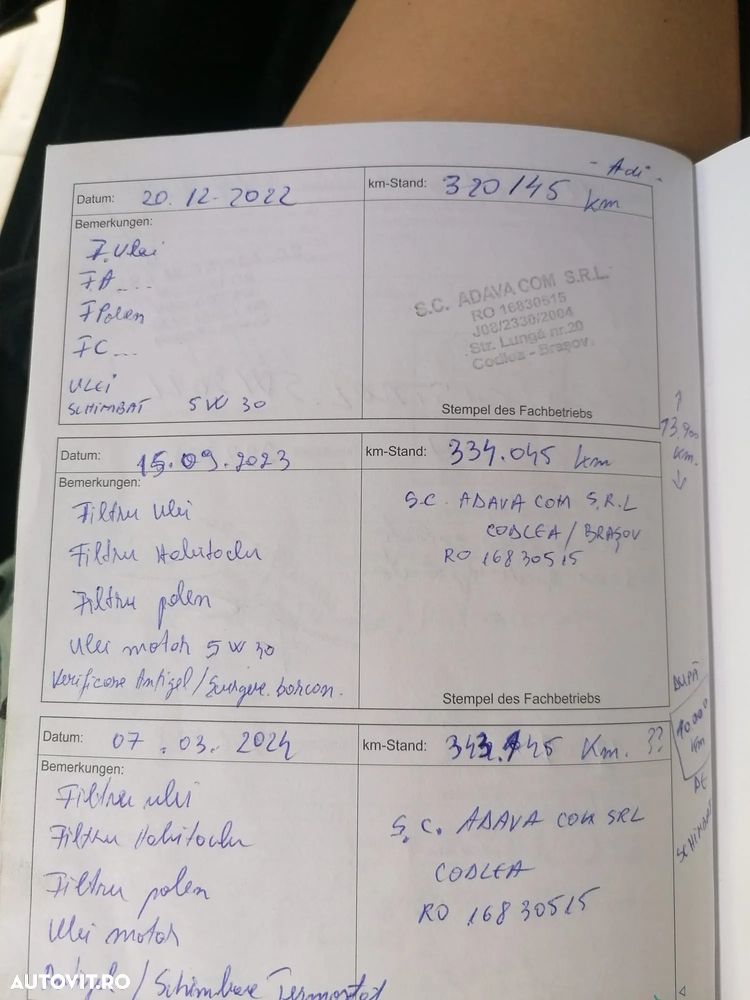 - Adi -
Datum: 20.12-2022
km-Stand: 320145 km
Bemerkungen:
F. Ulei
FA...
F Polen
FC...
ULEI
SCHIMBAT 5W30
S.C. ADAVA COM S.R.L.
RO 16830515
J08/2330/2004
Str. Lungă nr.20
Codlea - Braşov.
Stempel des Fachbetriebs
↑
13.900
Km.
↓
Datum: 15.09.2023
km-Stand: 334.045 km
Bemerkungen:
Filtru Ulei
Filtru Habitaclu
Filtru polen
Ulei motor 5W30
Verificare Antigel/Scurgere borcan.
S.C. ADAVA COM S.R.L
CODLEA/BRAŞOV
RO 16830515
Stempel des Fachbetriebs
DUPĂ
10.000
Km
DE
SCHIMBAT
Datum: 07.03.2024
km-Stand: 343.145 Km. ??
Bemerkungen:
Filtru ulei
Filtru Habitaclu
Filtru polen
Ulei motor
Antigel/Schimbare Termostat
S.C. ADAVA COM SRL
CODLEA
RO 16830515
AUTOVIT.RO